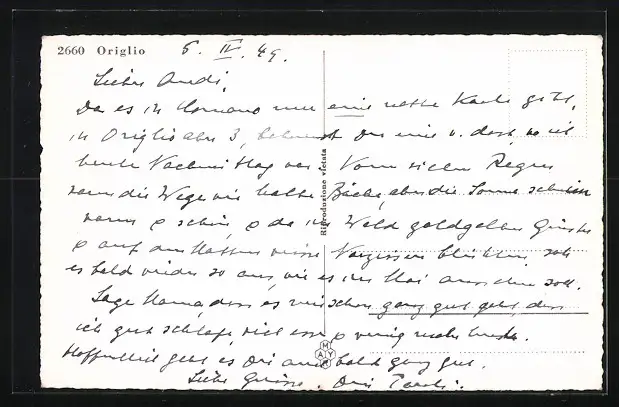 2660 Origlio 5. IV. 49.
Liebe Andi,
Da es in Comano nur eine nette Karte gibt,
in Origlio aber 3, bekommst Du eine v. dort, wo ich
heute Nachmittag war. Vom vielen Regen
waren die Wege wie halbe Bäche, aber die Sonne schien
warm & schön, & da im Wald goldgelber Ginster
& auf den Matten weisse Narzissen blühten, sah
es bald wieder so aus, wie es im Mai aussehen soll.
Sage Mama, dass es mir schon ganz gut geht, dass
ich gut schlafe, viel esse & wenig mehr huste.
Hoffentlich geht es Dir auch bald ganz gut.
Liebe Grüsse, Dein
Riproduzione vietata
MAY